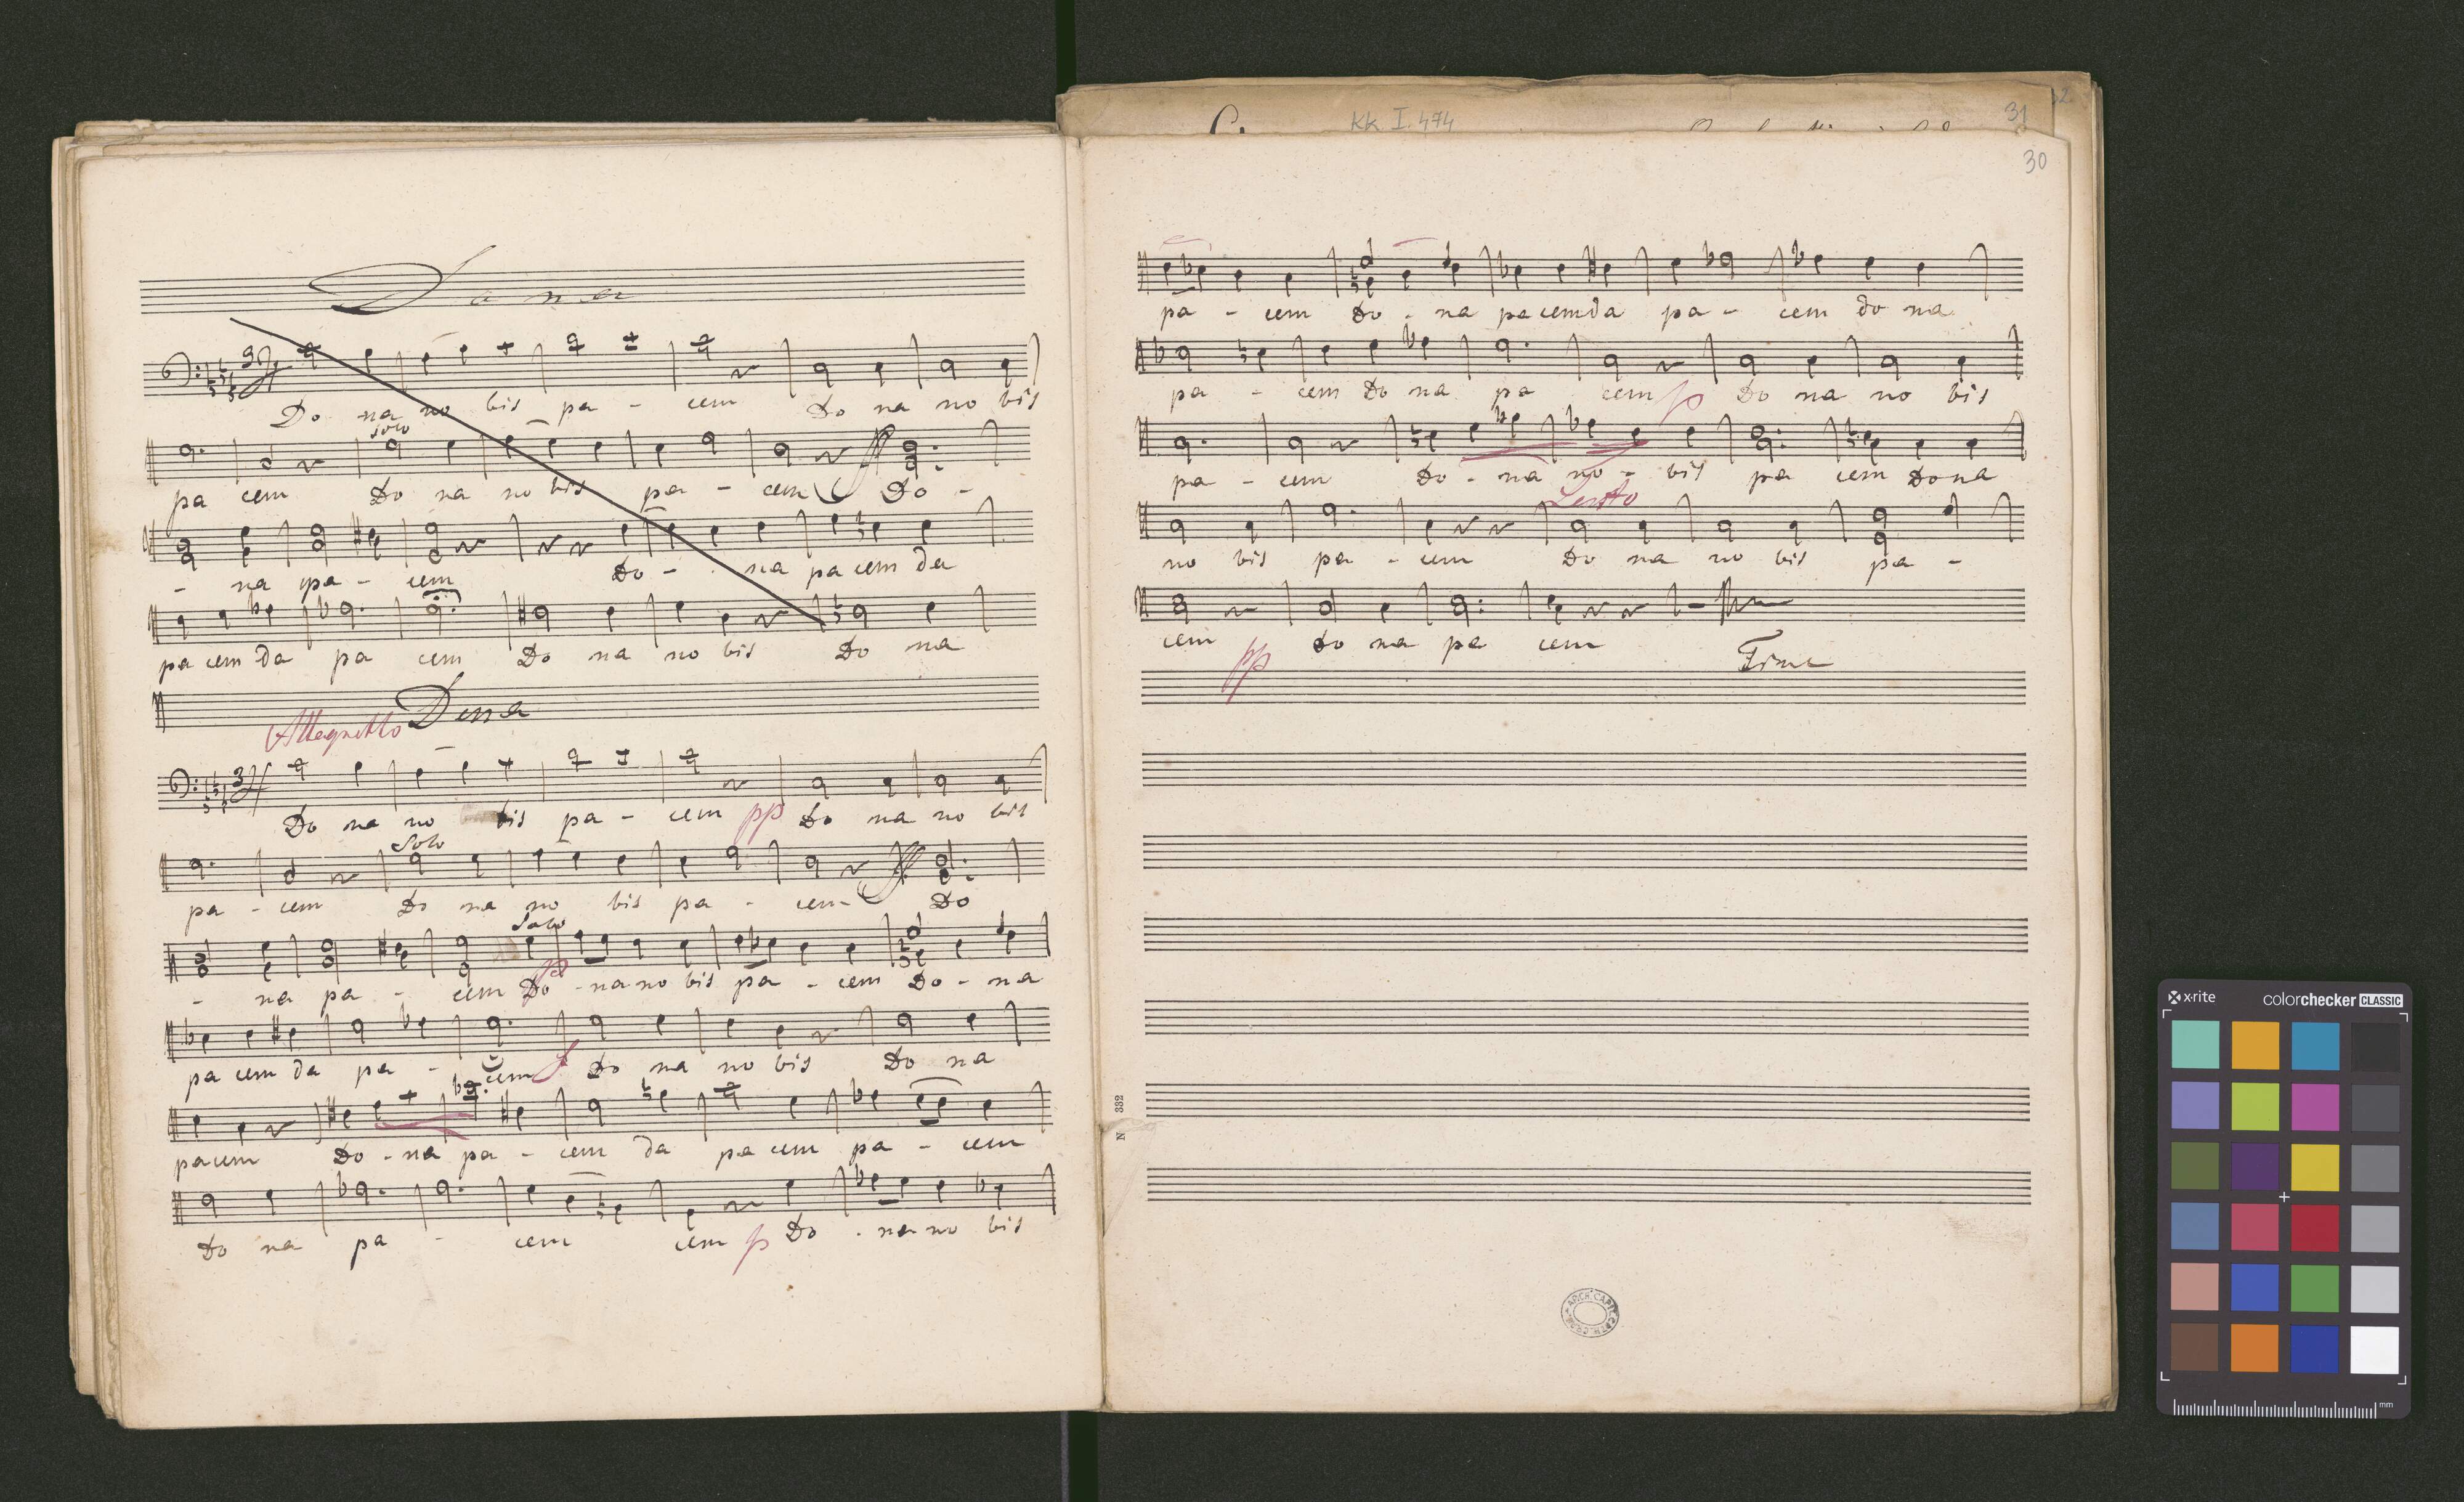 Dona
Do na no bis pa - cem Do na no bis
Solo
pa cem Do na no bis pa - cem Do -
- na pa - cem Do - na pa cem da
pa cem da pa cem Do na no bis Do na
Allegretto Dona
Do na no bis pa - cem pp Do na no bis
Solo
pa - cem Do na no bis pa - cem - Do
Solo
- na pa - cem p Do - na no bis pa - cem Do - na
pa cem da pa - cem f Do na no bis Do na
pacem Do - na pa - cem da pa cem pa - cem
Do na pa - cem cem p Do - na no bis
KK I. 474
31
32
30
pa - cem Do - na pacem da pa - cem do na
pa - cem Do na pa cem p Do na no bis
pa - cem Do - na no - bis pa cem Dona
Lento
no bis pa - cem Do na no bis pa -
cem pp do na pa cem Fine
N 332
ARCH. CAPIT.
x-rite colorchecker CLASSIC
mm